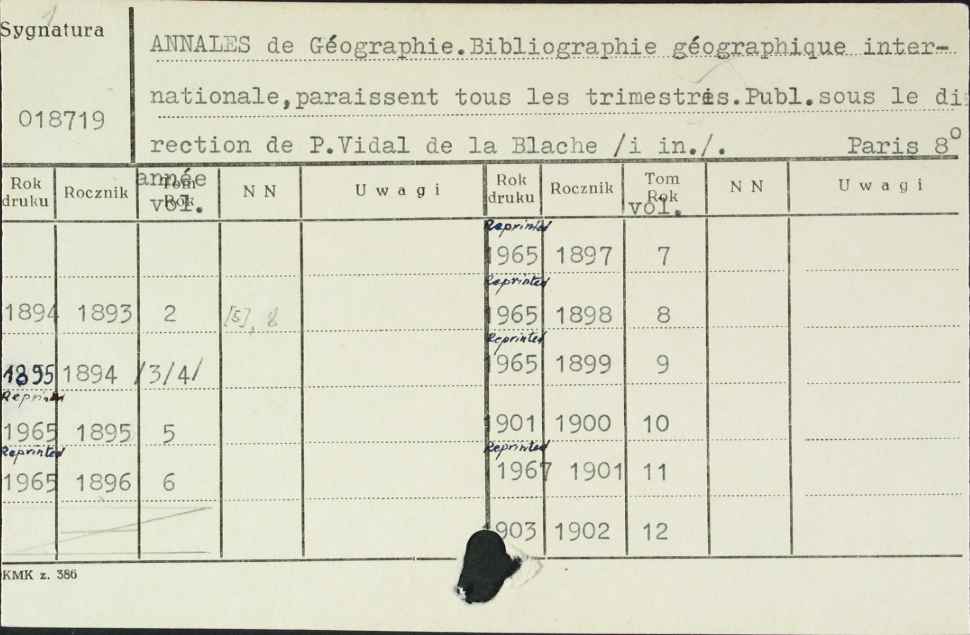 Sygnatura
018719
ANNALES de Géographie.Bibliographie géographique inter-
nationale,paraissent tous les trimestres.Publ.sous le di
rection de P.Vidal de la Blache /i in./. Paris 8°
Rok druku Rocznik Tom Rok année vol. N N Uwagi Rok druku Rocznik Tom Rok vol. N N Uwagi
Reprinted
1965 1897 7
1894 1893 2 [5], 8
Reprinted
1965 1898 8
1895 1894 /3/4/
Reprinted
1965 1899 9
Reprinted
1965 1895 5
1901 1900 10
Reprinted
1965 1896 6
Reprinted
1967 1901 11
1903 1902 12
KMK z. 386